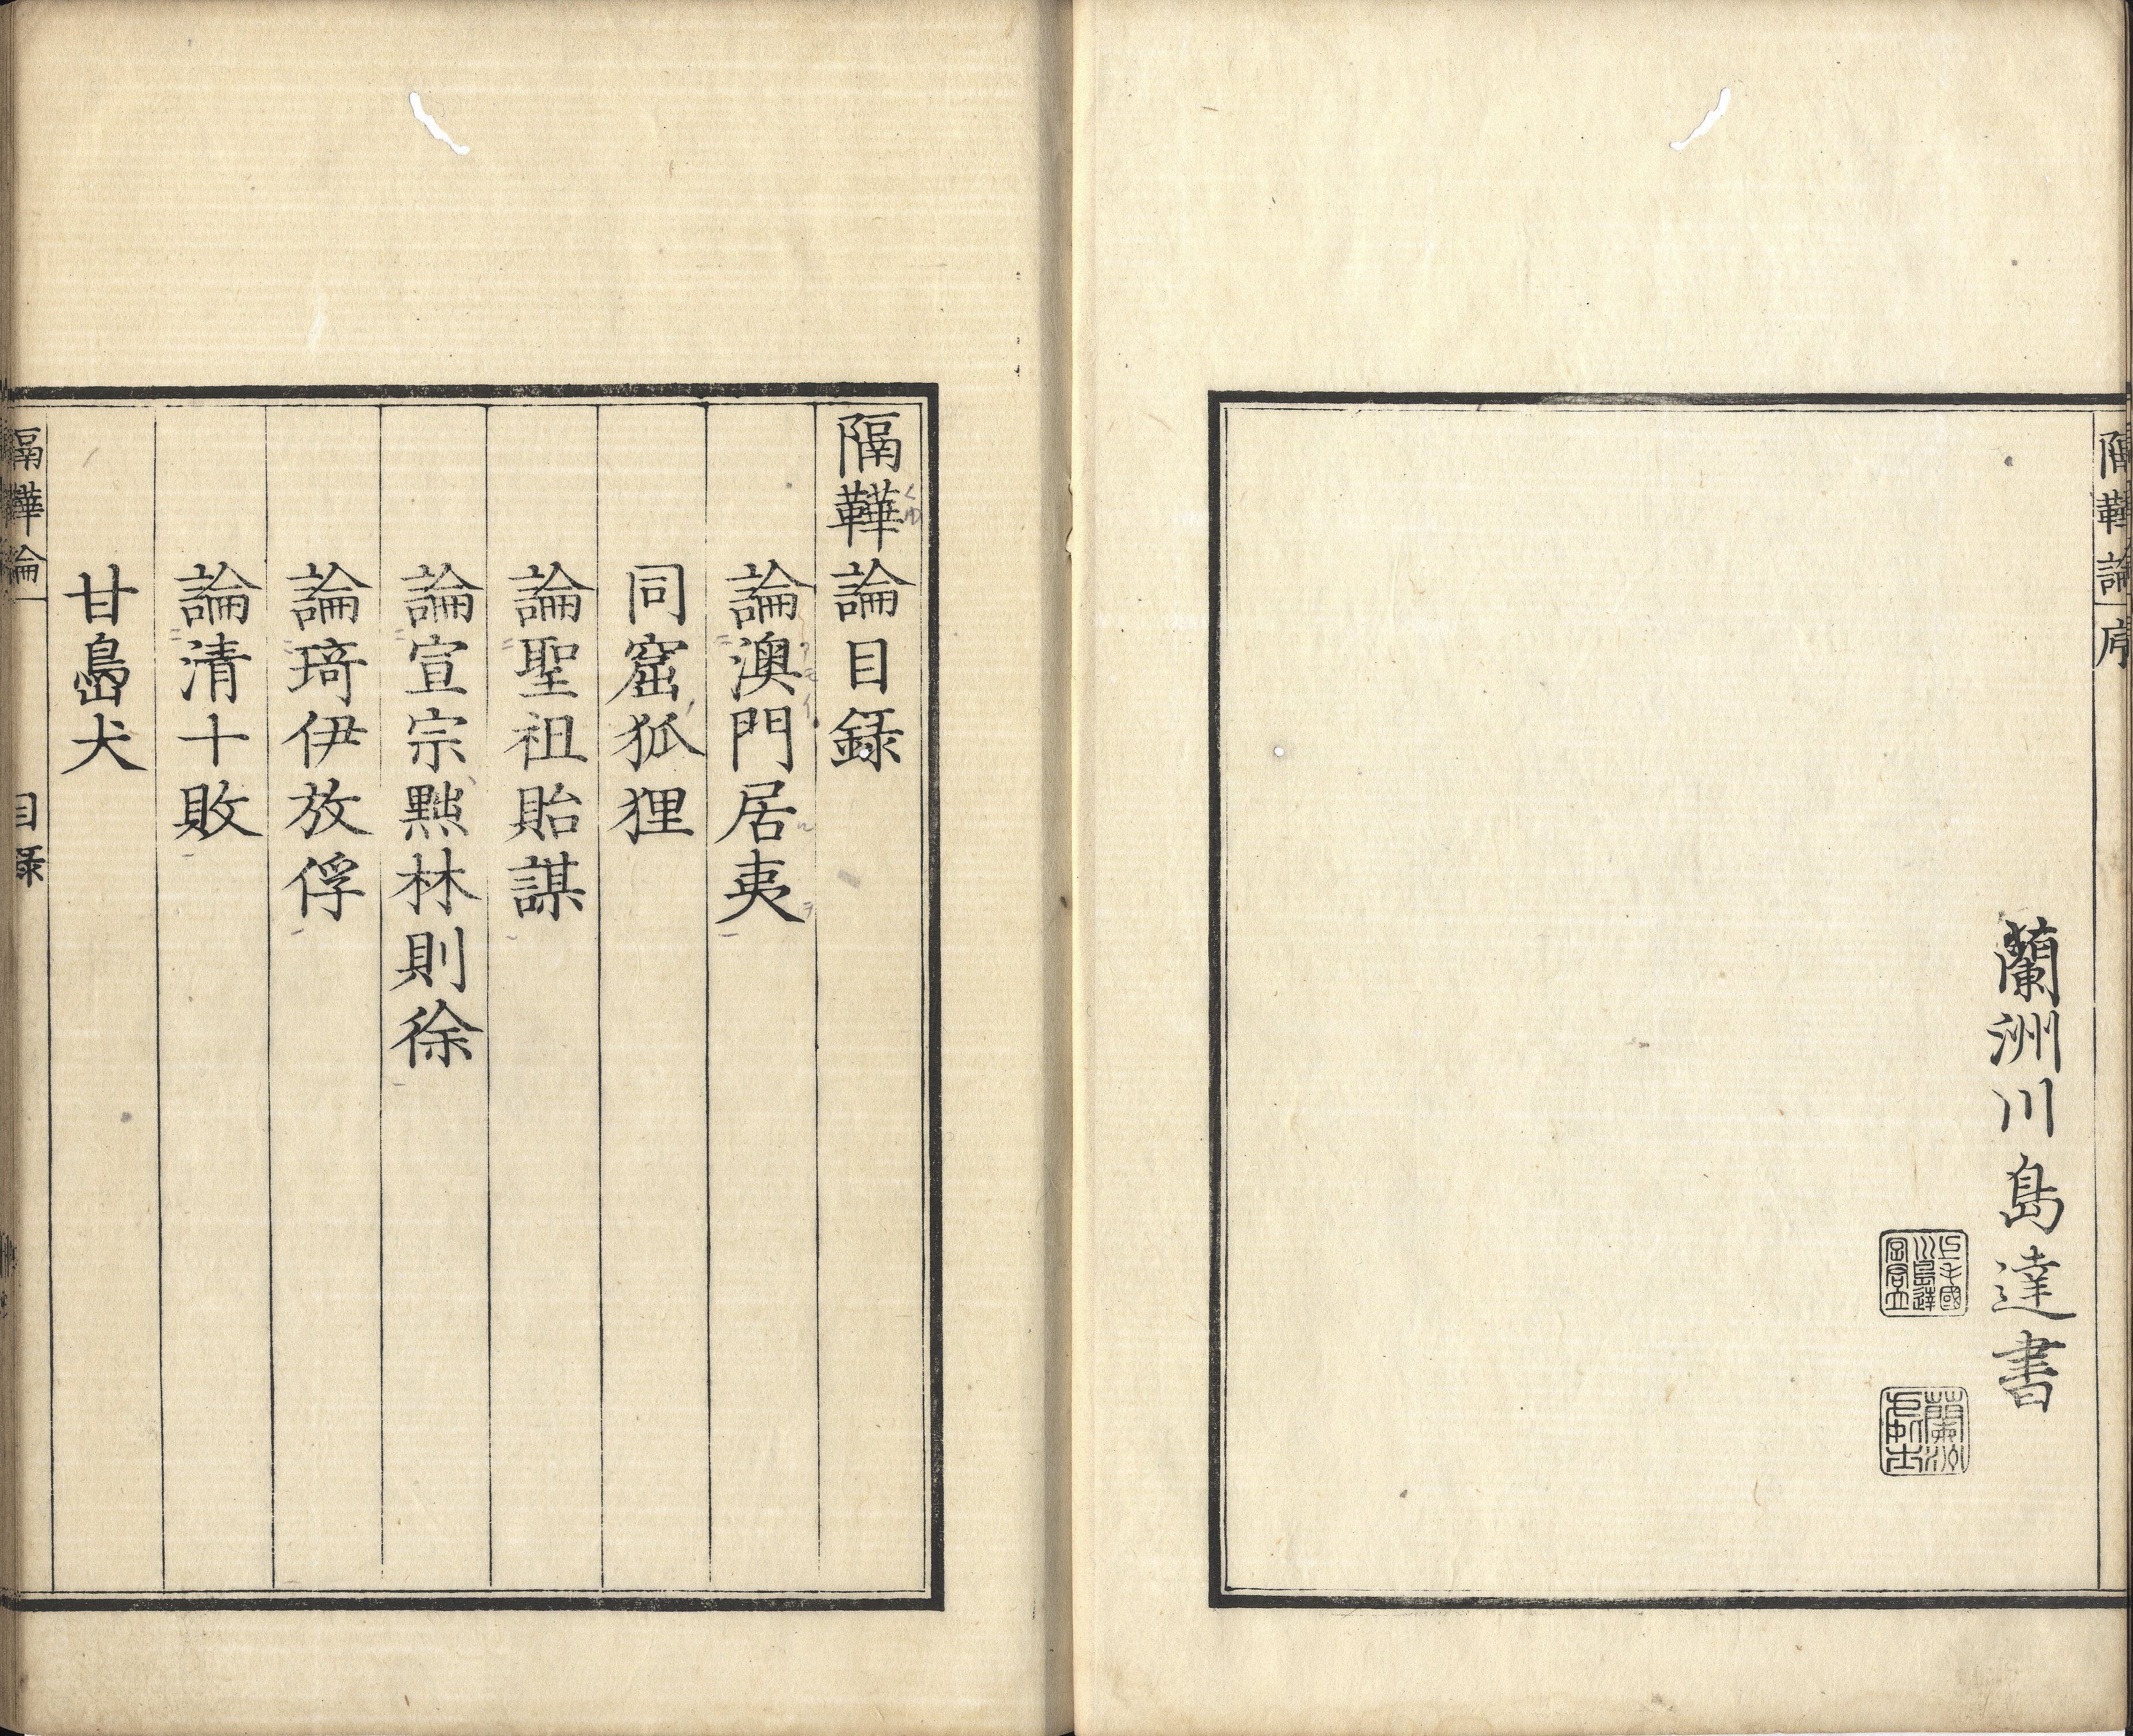 隔鞾論序
蘭洲川島達書
隔鞾論目録
論澳門居夷
同窟狐狸
論聖祖貽謀
論宣宗㸃林則徐
論琦伊放俘
論清十敗
甘㠀犬
隔鞾論
目録